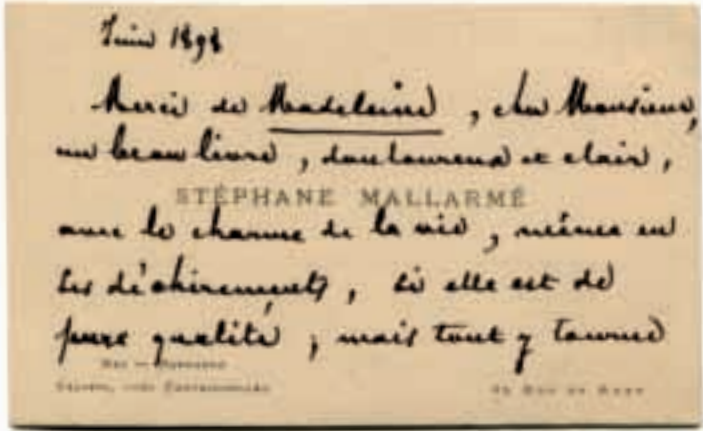 Juin 1898
Merci de Madeleine, cher Monsieur,
un beau livre, douloureux et clair,
STÉPHANE MALLARMÉ
avec le charme de la vie, même en
ses déchirements, si elle est de
pure qualité; mais tout y tourne